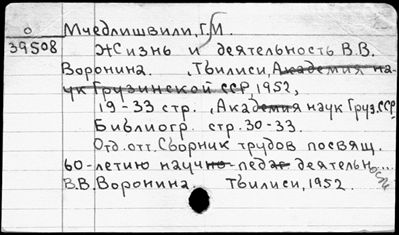 О Мчедлишвили, Г.М.
39508 Жизнь и деятельность В.В.
Воронина. , Тбилиси, Академия на-
ук Грузинской ССР, 1952,
19-33 стр. , Академия наук Груз.ССР
Библиогр. стр. 30-33.
Отд. отт. Сборник трудов посвящ.
60-летию научно-педаг деятельности
В.В.Воронина. Тбилиси, 1952.